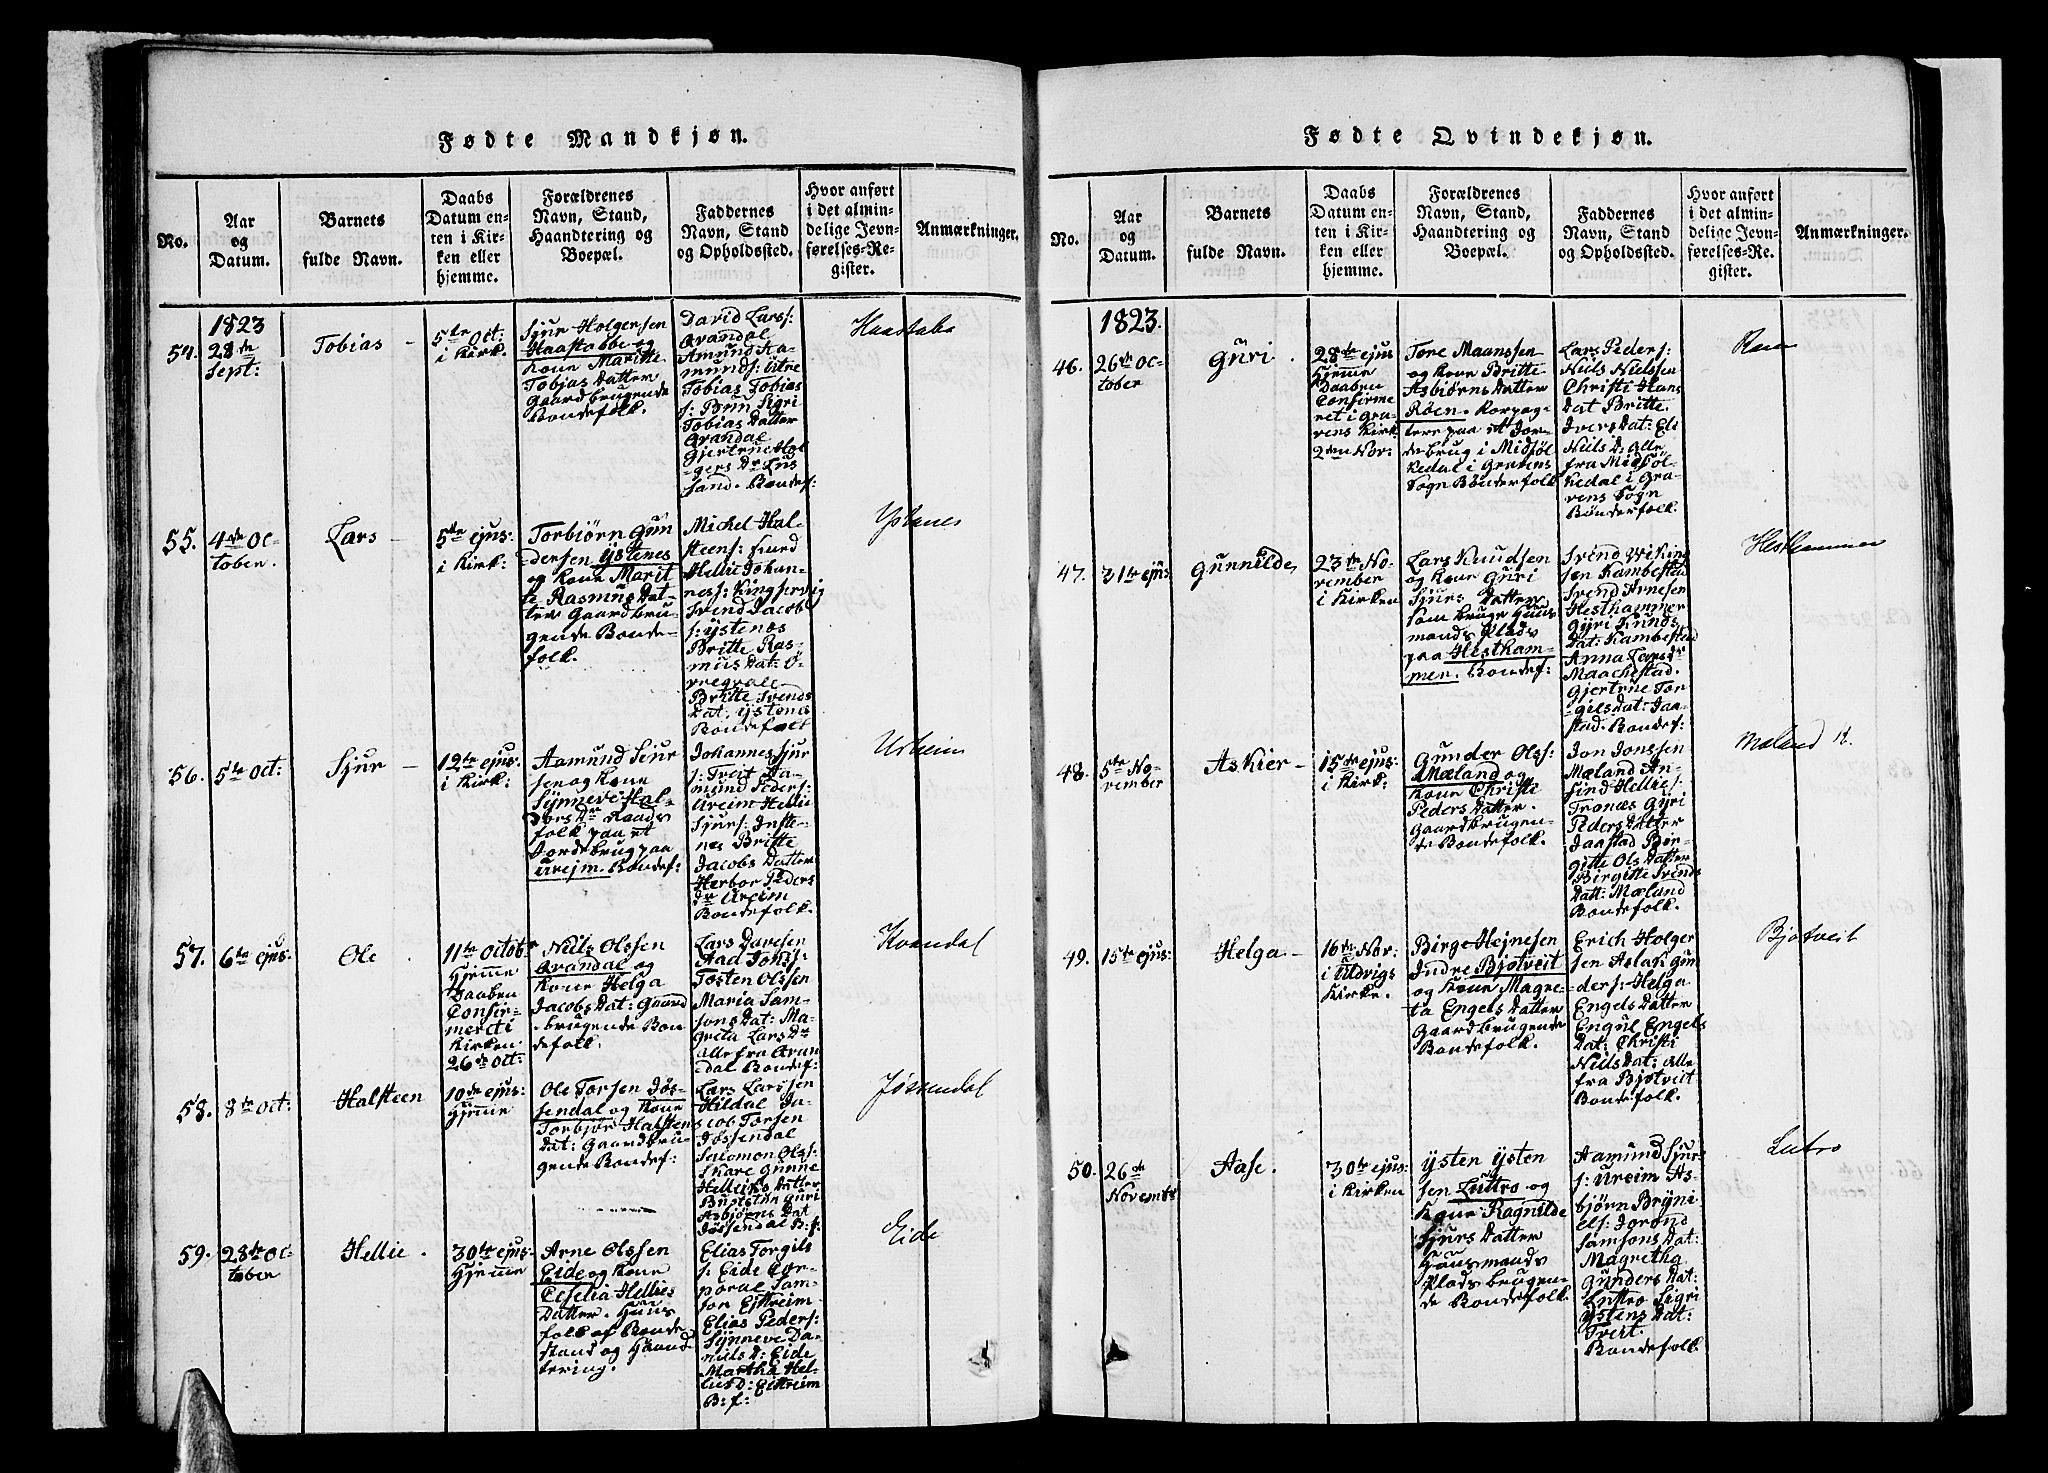 Fødte Mandkjøn.
No.
Aar
og
Datum.
Barnets
fulde Navn.
Daabs
Datum en-
ten i Kir-
ken eller
hjemme.
Forældrenes
Navn, Stand,
Haandtering og
Boepæl.
Faddernes
Navn, Stand
og Opholdssted.
Hvor anført
i det almin-
delige Jevn-
førelses-Re-
gister.
Anmærkninger.
54.
1823
28de
Sept:
Tobias
5te Oct:
i Kirk.
Sjur Holgersen
Haastabbe og
Kone Maritte
Tobias Datter
Gaardbrugende
Bondefolk.
David Larss:
Qvandal
Amund Aa-
munds: Ytre
Tobias Tobias
s: Brun Sigri
Tobias Datter
Qvandal
Gjertrne Hol
gers Dr Lus
sand. Bondef:
Haastabe
55.
4de Oc-
tober.
Lars
5te ejus:
i Kirk:
Torbiørn Gun
dersen Ystenes
og Kone Marit
te Rasmus Dat-
ter Gaardbru-
gende Bonde-
folk.
Michel Hal-
steens:
Hellie Johan-
ness: Kingservig
Svend Jacob
s: Ystenæs
Britte Ras-
mus Dat: Ö-
vregvale
Britte Svends
Dat. Ystenes
Bondefolk
Ystenes
56.
5te Oct:
Sjur
12te ejus:
i Kirk:
Aamund Sjur
sen og Kone
Synneve Hal-
dors Dr. Raads
folk paa et
Jordebrug paa
Urejm. Bondef:
Johannes Sjur
s: Tveit Aa-
mund Peders:
Ureim Hellie
Sjurs: Inste-
næs Britte
Jacobs Datter
Herbor Peders
dr Ureim
Bondefolk.
Urheim
57.
6te ejus:
Ole
11te Octobr
Hjemme
Daaben
Confir-
meret i
Kirken
26de Oct:
Niels Olssen
Qvandal og
Kone Helga
Jacobs Dat: Gaard
brugende Bon
defolk.
Lars Davesen
Aad Jons:
Tosten Olssen
Maria Sam-
sons Dat: Ma-
greta Lars Dr
alle fra Qvan
dal Bondef:
Kvandal
58.
8te Oct:
Halsteen
10de ejus:
Hjemme
Ole Torsen Jös-
sendal og Kone
Torbjør Halstens
Dat: Gaardbru-
gende Bondef:
Lars Larssen
Hildal Ja-
cob Torsen
Jössendal
Salomon Olss:
Skare Gunne
Helliks Datter
Bustetön Guri
Asbjørns Dat
Jössendal B: f:
Jøssendal
59.
28de Oc-
tober
Hellie.
30te ejus:
Hjemme
Arne Olssen
Eide og Kone
Ceselia Hellies
Datter. Huus
folk af Bonde
stand og Haand
tering.
Elias Torgils
s: Eide Cor-
poral Sam-
son Ejttreim
Elias Peders:
Synneve Da-
niels D: Eide
Martha Hel-
lies D: Eittreim
B: f:
Eide
Fødte Qvindekjøn.
No.
Aar
og
Datum.
Barnets
fulde Navn.
Daabs
Datum en-
ten i Kir-
ken eller
hjemme.
Forældrenes
Navn, Stand,
Haandtering og
Boepæl.
Faddernes
Navn, Stand
og Opholdssted.
Hvor anført
i det almin-
delige Jevn-
førelses-Re-
gister.
Anmærkninger.
46.
1823.
26de Oc-
tober
Guri
28de ejus
Hjemme
Daaben
Confirme
ret i Gra-
vens Kirk
2den Nov:
Tore Maanssen
og Kone Britte
Asbiørns Datter
Röen.
tere paa et Jor-
debrug i Midføl
kedal i Gravens
Sogn Bönderfolk
Lars Peders:
Niels Nielsen
Christi Hans
Dat Britte
Ivers Dat: Eli
Niels D: Alle
fra Midföl-
kedal i Gra-
vens Sogn
Bönderfolk.
47.
31te ejus
Gunnilde
23de No-
vember
i Kirken
Lars Knudsen
og Kone Guri
Sjurs Datter
som bruge Huus
mands Plads
paa Hestham-
mer. Bondef:
Svend Viking
sen Kambestad
Svend Arnesen
Hesthammer
Gyri Knuds
Dat: Kambestad
Anna Lars dr
Maachestad.
Gjertrne Tor
gilsdat: Jaa-
stad. Bondef:
Hesthammer
48.
5te No-
vember
Askier
15de ejus:
i Kirk:
Gunder Olss:
Mæland og
Kone Christi
Peders Datter.
Gaardbrugen-
de Bondefolk.
Jon Jonssen
Mæland An-
find Hellies:
Tronæs Gyri
Peders Datter
Jaastad Bir-
gitte Ols Datter
Birgitte Svends
Dat: Mæland
Bondefolk.
Mæland
49.
15de ejus:
Helga
16de Nov:
i Uldvigs
Kirke.
Birge Hejnesen
Indre Bjotveit
og Kone Magre-
ta Engels Datter
Gaardbrugende
Bondefolk.
Erich Holger
sen Aslak Gun
ders: Helga
Engels Datter
Engul Engels
Dat: Christi
Niels Dat: Alle
fra Bjotveit
Bondefolk.
Bjotveit
50.
26de
November
Aase.
30te ejus:
i Kirken
Ysten Ysten
sen Luttro og
Kone Ragnilde
Sjurs Datter
Huusmands
Plads brugen-
de Bondefolk.
Aamund Sjur
s: Ureim As-
bjørn Bryni
els: Igrond
Samsons Dat:
Magretha
Gunders Dat:
Luttro Sigri
Ystens Dat:
Tveit.
Bondefolk
Lutro